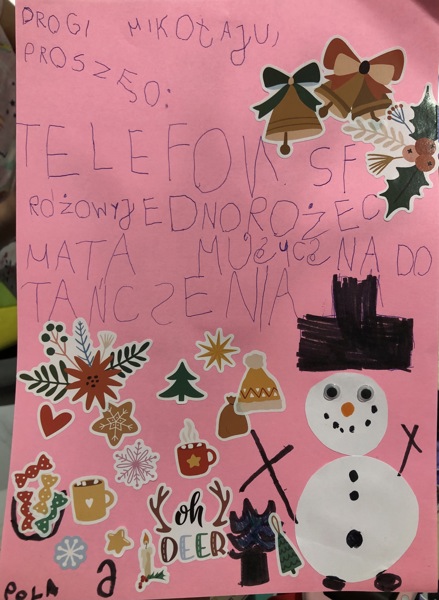 DROGI MIKOŁAJU,
PROSZĘ O:
TELEFON SF
RÓŻOWY JEDNOROŻEC
MATA MUZYCZNA DO
TAŃCZENIA
oh
DEER
POLA